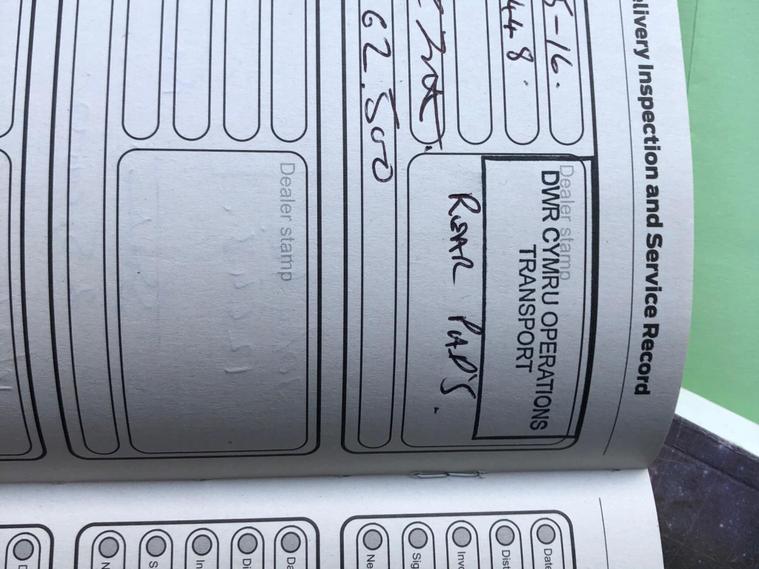 elivery Inspection and Service Record
5-16.
448.
Dealer stamp
DWR CYMRU OPERATIONS
TRANSPORT
REAR PAD'S.
62.500
Dealer stamp
Date
Dist
Invo
Sig
Ne
Da
Di
In
S
N
D